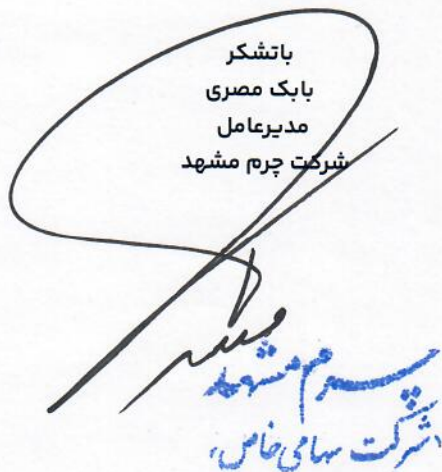 باتشکر
بابک مصری
مدیرعامل
شرکت چرم مشهد
چرم مشهد
(شرکت سهامی خاص)